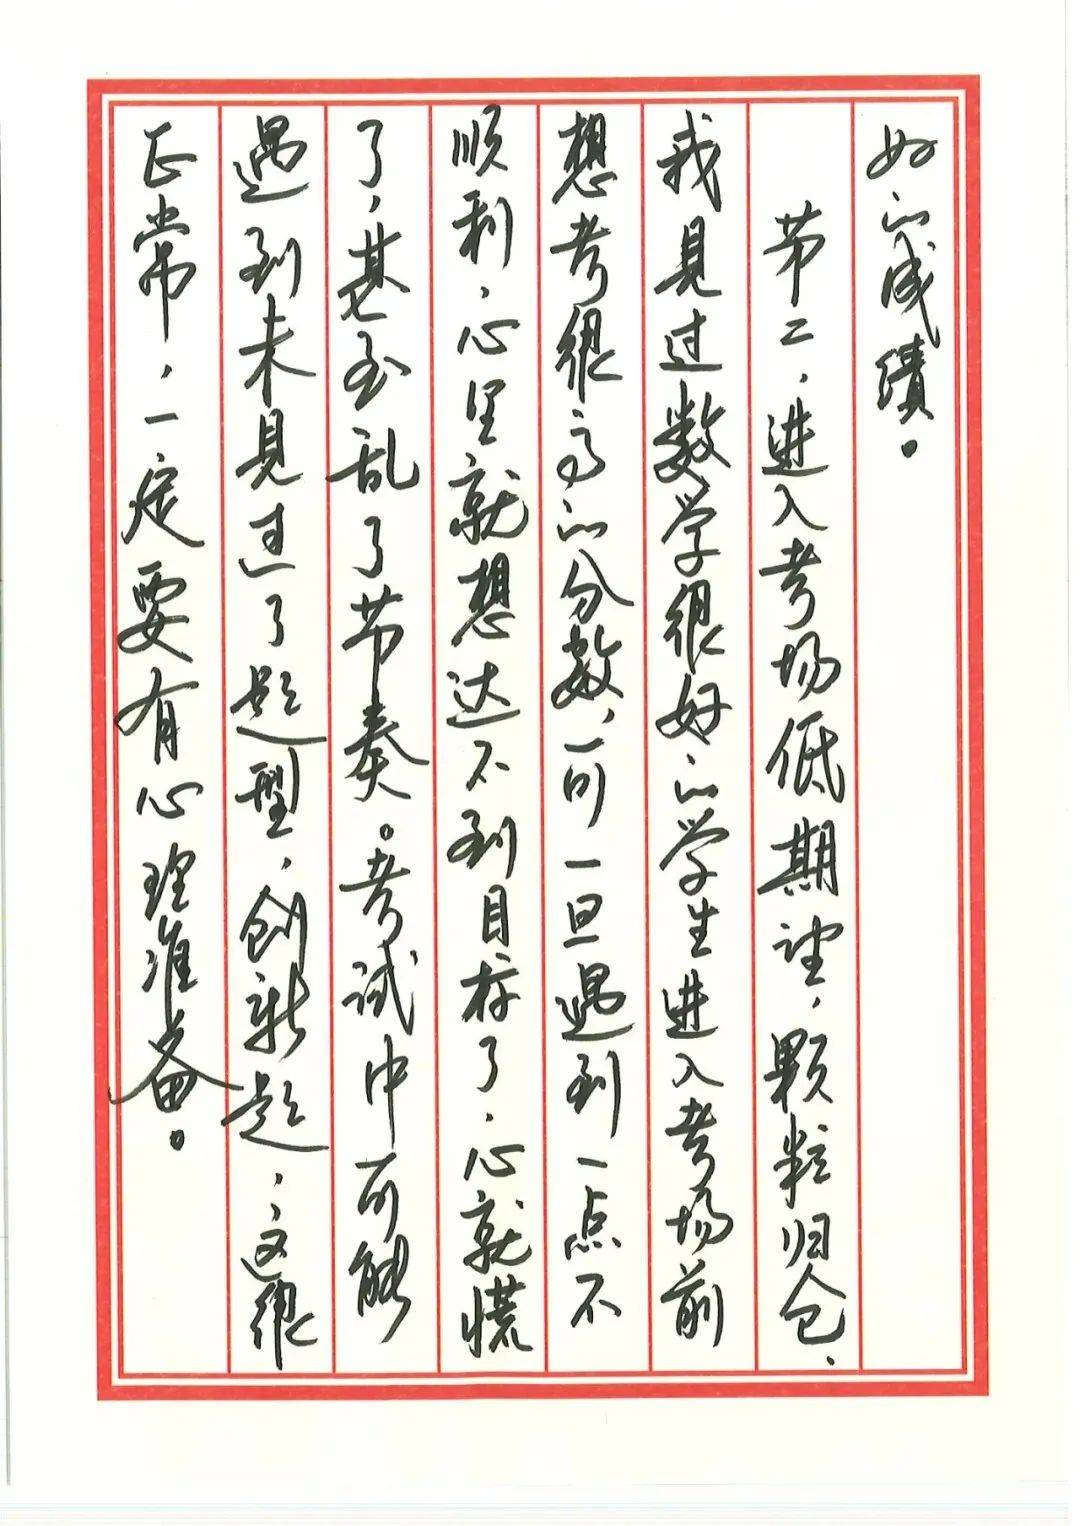 好的成绩。
第二，进入考场低期望，颗粒归仓，
我见过数学很好的学生进入考场前
想考很高的分数，可一旦遇到一点不
顺利，心里就想达不到目标了，心就慌
了，甚至乱了节奏。考试中可能
遇到未见过了题型，创新题，这很
正常，一定要有心理准备。